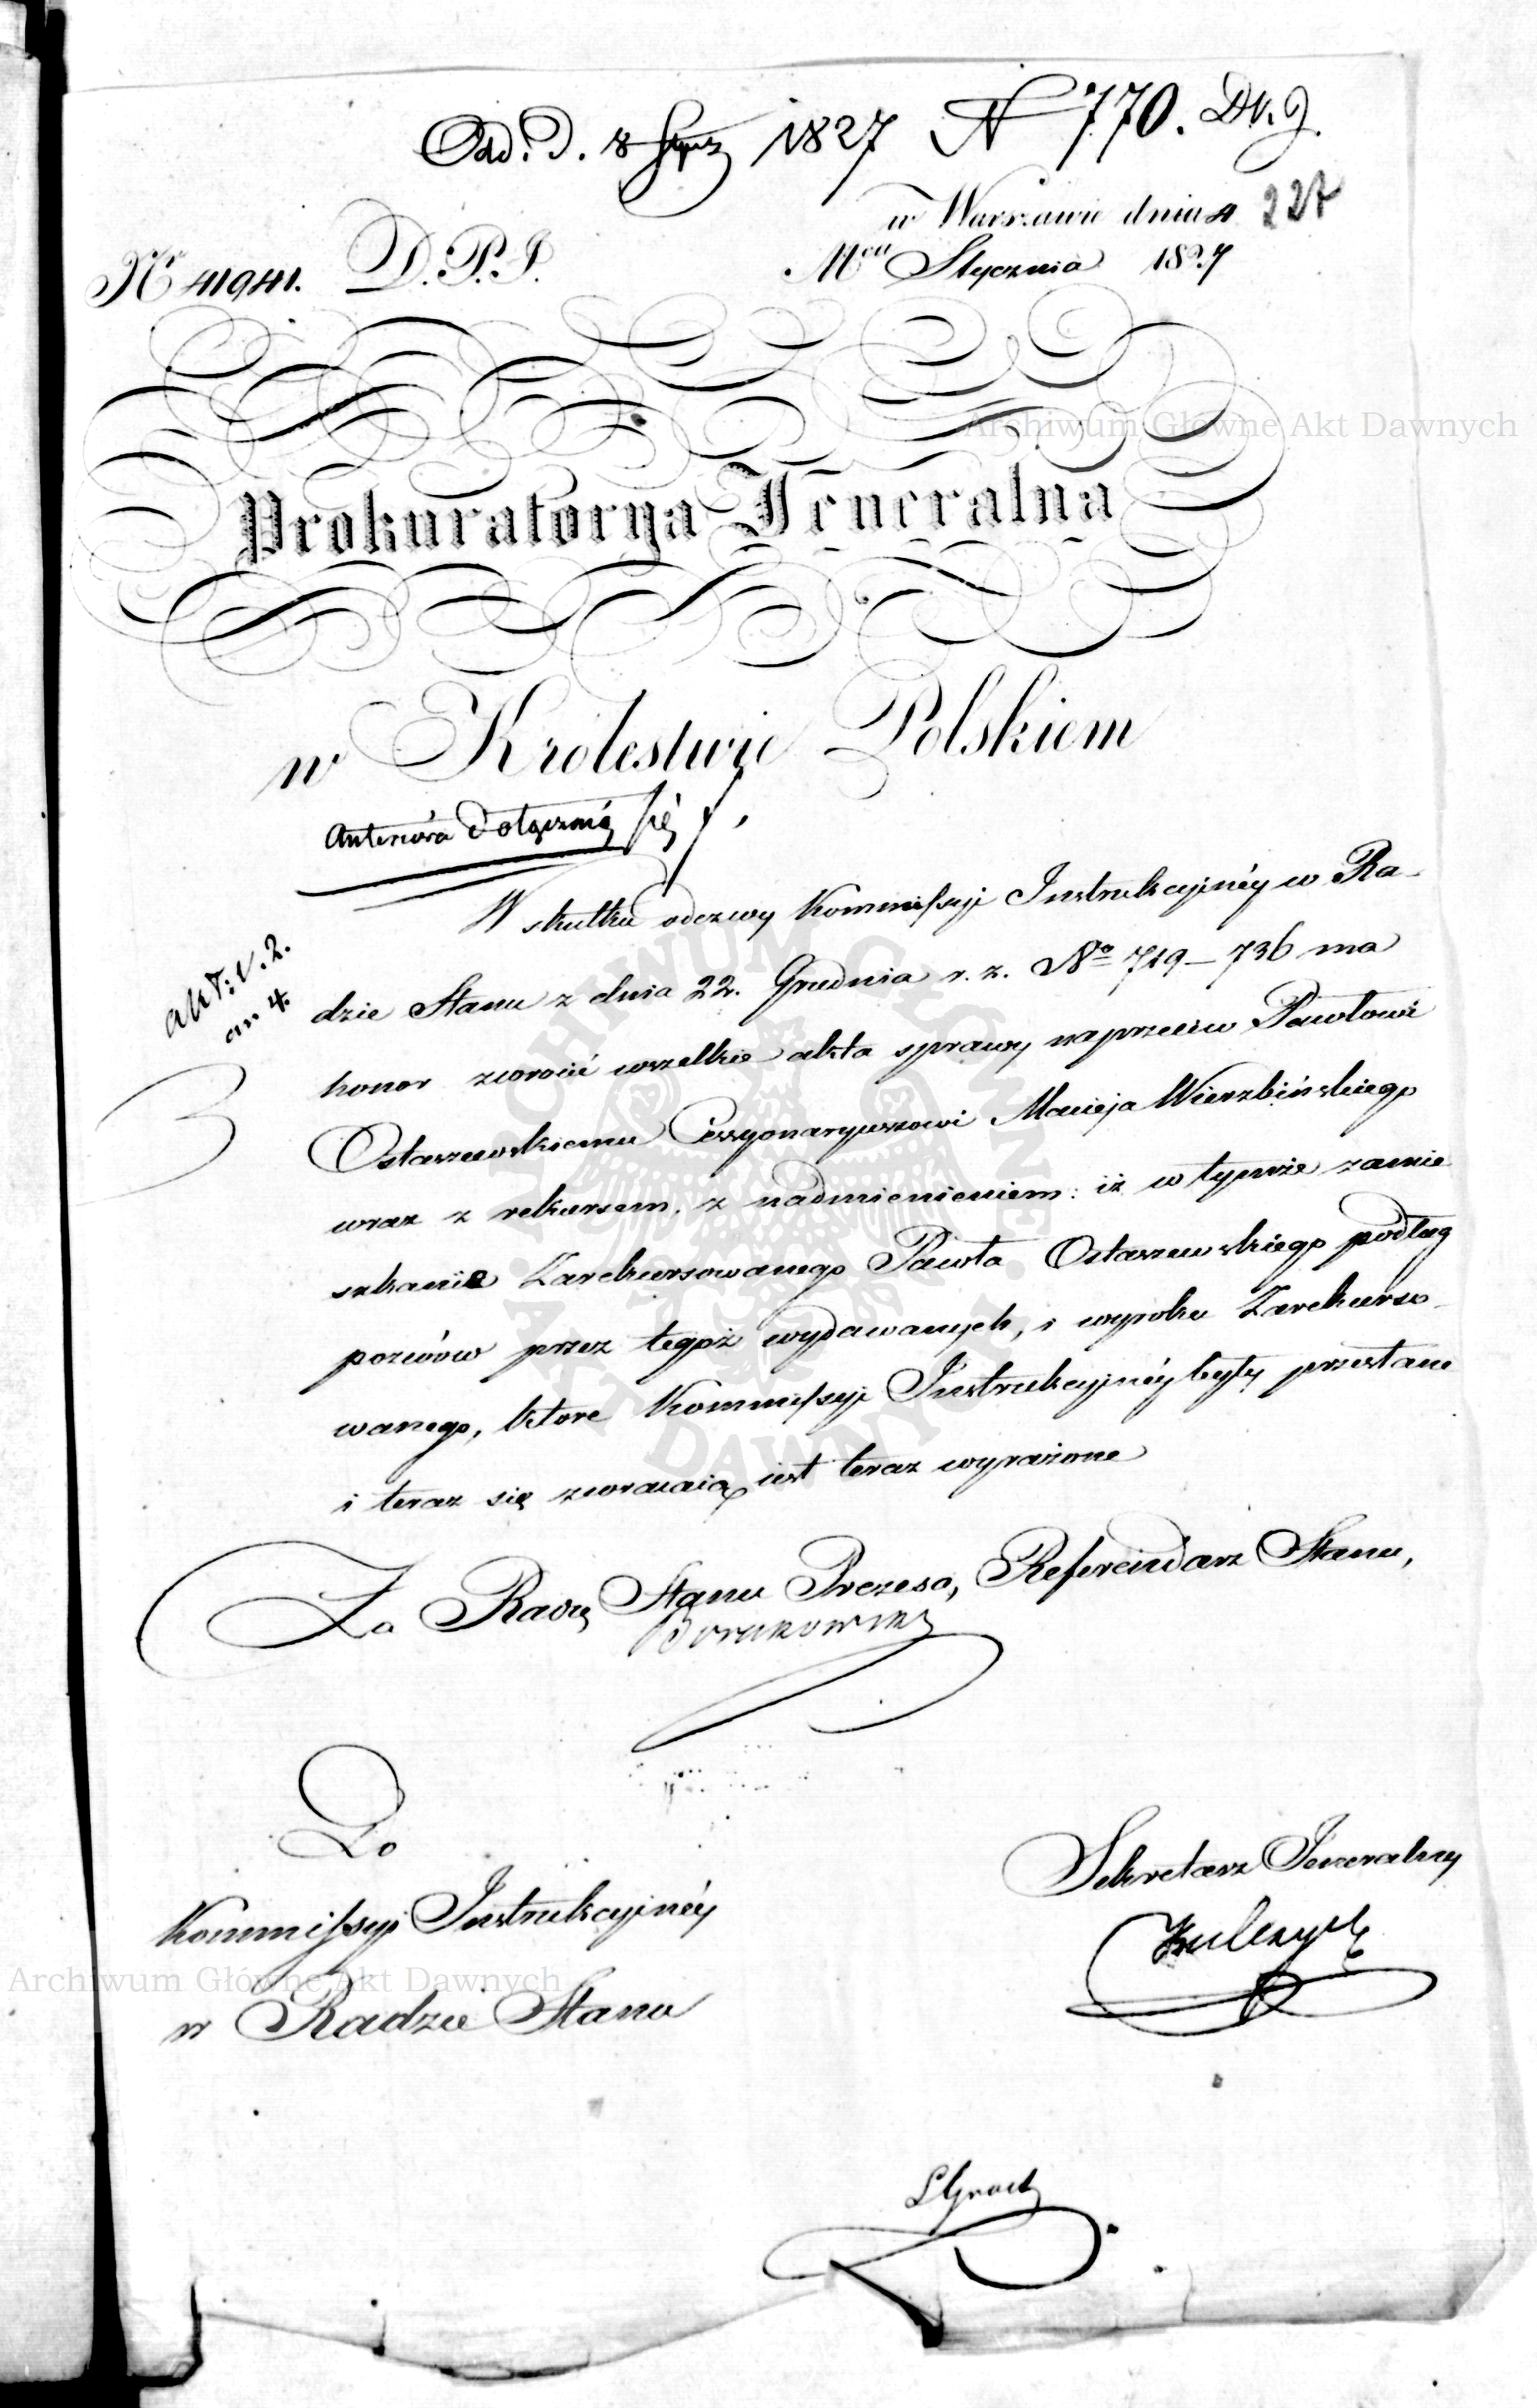 Odd. d. 8 Stycz 1827 N 770. Dz. J.
w Warszawie dnia 4 227
Mca Stycznia 1827
Nr 41941. D.P.J.
Archiwum Główne Akt Dawnych
Prokuratorya Jeneralna
w Krolestwie Polskiem
Anteriora dołączają się
W skutku odezwy Kommissyi Instrukcyjnéy w Ra-
dzie Stanu z dnia 22. Grudnia r. z. No 719–736 ma
akt: v. 2.
an 4.
honor zwrocić wszelkie akta sprawy naprzeciw Pawłowi
Ostaszewskiemu Cessyonaryuszowi Macieja Wierzbińskiego
wraz z rekursem, z nadmienieniem: iż w tymże zamie
szkanie Zarekursowanego Pawła Ostaszewskiego podług
pozwów przez tegoż wydawanych, i wyroku Zarekurso-
wanego, ktore Kommissyi Instrukcyjnéy były przesłane
i teraz się zwracaią, iest teraz wyrażone
Za Radcę Stanu Prezesa, Referendarz Stanu,
Do
Kommissyi Instrukcyjnéy
w Radzie Stanu
Sekretarz Jeneralny
Archiwum Główne Akt Dawnych
ARCHIWUM GŁÓWNE AKT DAWNYCH